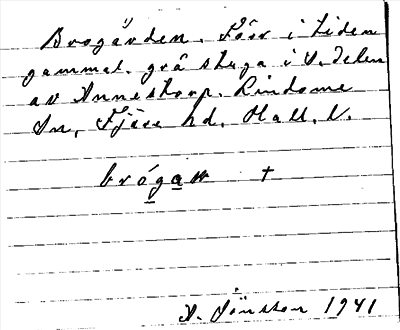 Brogården. Förr i tiden
gammal. grå stuga i V. delen
av Annestorp. Lindome
Sn, Fjäre hd. Hall. l.
brógaɳ †
A. Jönsson 1941